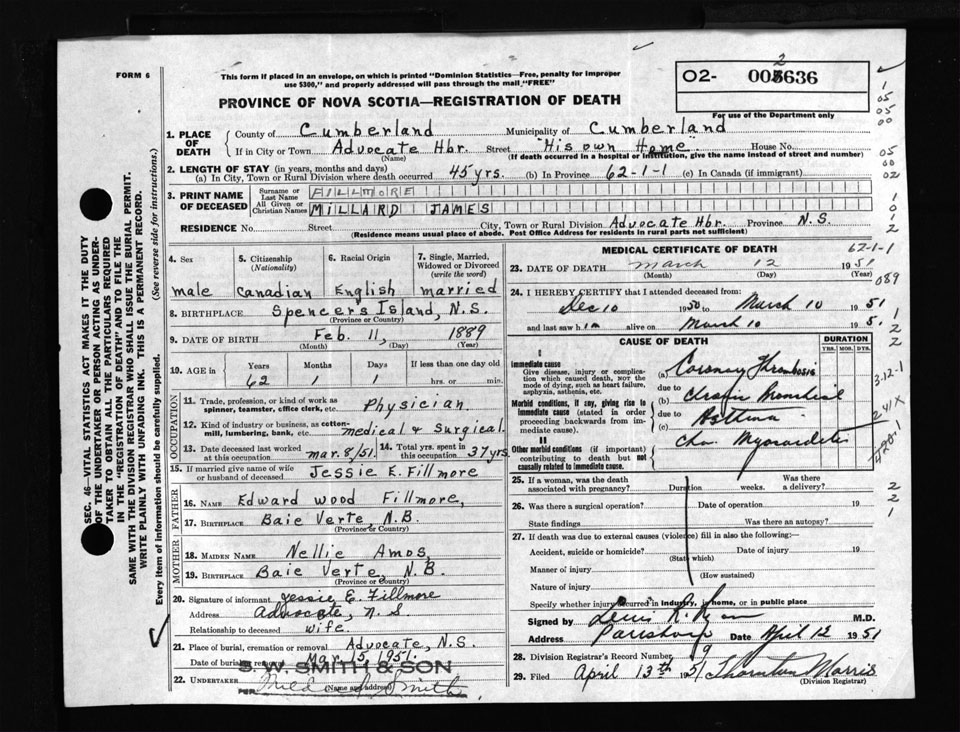 FORM 6
This form if placed in an envelope, on which is printed "Dominion Statistics—Free, penalty for improper
use $300," and properly addressed will pass through the mail "FREE"
PROVINCE OF NOVA SCOTIA—REGISTRATION OF DEATH
O2- 636
For use of the Department only
1. PLACE OF DEATH
County of Cumberland Municipality of Cumberland
If in City or Town Advocate Hbr. Street "His own Home" House No.
(Name) (If death occurred in a hospital or institution, give the name instead of street and number)
2. LENGTH OF STAY (in years, months and days)
(a) In City, Town or Rural Division where death occurred 45 yrs. (b) In Province 62-1-1 (c) In Canada (if immigrant)
3. PRINT NAME OF DECEASED
Surname or Last Name FILLMORE
All Given or Christian Names MILLARD JAMES
RESIDENCE No. Street City, Town or Rural Division Advocate Hbr. Province N.S.
(Residence means usual place of abode. Post Office Address for residents in rural parts not sufficient)
4. Sex 5. Citizenship (Nationality) 6. Racial Origin 7. Single, Married, Widowed or Divorced (write the word)
male Canadian English married
8. BIRTHPLACE Spencers Island, N.S.
(Province or Country)
9. DATE OF BIRTH Feb. 11, 1889
(Month) (Day) (Year)
10. AGE in Years Months Days If less than one day old
62 1 hrs. or min.
OCCUPATION
11. Trade, profession, or kind of work as spinner, teamster, office clerk, etc. Physician
12. Kind of industry or business, as cotton-mill, lumbering, bank, etc. medical & Surgical
13. Date deceased last worked at this occupation mar. 8/51 14. Total yrs. spent in this occupation 37 yrs
15. If married give name of wife or husband of deceased Jessie E. Fillmore
FATHER
16. NAME Edward Wood Fillmore,
17. BIRTHPLACE Baie Verte N.B.
(Province or Country)
MOTHER
18. MAIDEN NAME Nellie Amos,
19. BIRTHPLACE Baie Verte, N.B.
(Province or Country)
20. Signature of informant Jessie E. Fillmore
Address Advocate, N.S.
Relationship to deceased wife.
21. Place of burial, cremation or removal Advocate, N.S.
Date of burial or removal Mar. 15, 1951.
S. W. SMITH & SON
22. UNDERTAKER PER Smith
(Name and address)
MEDICAL CERTIFICATE OF DEATH
62-1-1
23. DATE OF DEATH March 12 1951
(Month) (Day) (Year)
089
24. I HEREBY CERTIFY that I attended deceased from:
Dec 10 1950 to March 10 1951
and last saw him alive on March 10 1951
CAUSE OF DEATH DURATION
YRS. MOS. DYS.
I
Immediate cause
Give disease, injury or complication which caused death, not the mode of dying, such as heart failure, asphyxia, asthenia, etc.
(a) Coronary Thrombosis
due to
Morbid conditions, if any, giving rise to immediate cause (stated in order proceeding backwards from immediate cause).
(b) Bronchial
due to
(c) Asthma
II
Other morbid conditions (if important) contributing to death but not causally related to immediate cause.
Chr. Myocarditis
3-12-1
241X
25. If a woman, was the death associated with pregnancy? Duration weeks. Was there a delivery?
26. Was there a surgical operation? Date of operation 19
State findings Was there an autopsy?
27. If death was due to external causes (violence) fill in also the following:—
Accident, suicide or homicide? Date of injury 19
(State which)
Manner of injury
(How sustained)
Nature of injury
Specify whether injury occurred in industry, in home, or in public place
Signed by M.D.
Address Parrsboro Date April 12 1951
28. Division Registrar's Record Number 9
29. Filed April 13th 1951 Thornton Morris
(Division Registrar)
SEC. 46—VITAL STATISTICS ACT MAKES IT THE DUTY
OF THE UNDERTAKER OR PERSON ACTING AS UNDER-
TAKER TO OBTAIN ALL THE PARTICULARS REQUIRED
IN THE "REGISTRATION OF DEATH" AND TO FILE THE
SAME WITH THE DIVISION REGISTRAR WHO SHALL ISSUE THE BURIAL PERMIT.
WRITE PLAINLY WITH UNFADING INK. THIS IS A PERMANENT RECORD.
Every item of information should be carefully supplied. (See reverse side for instructions.)